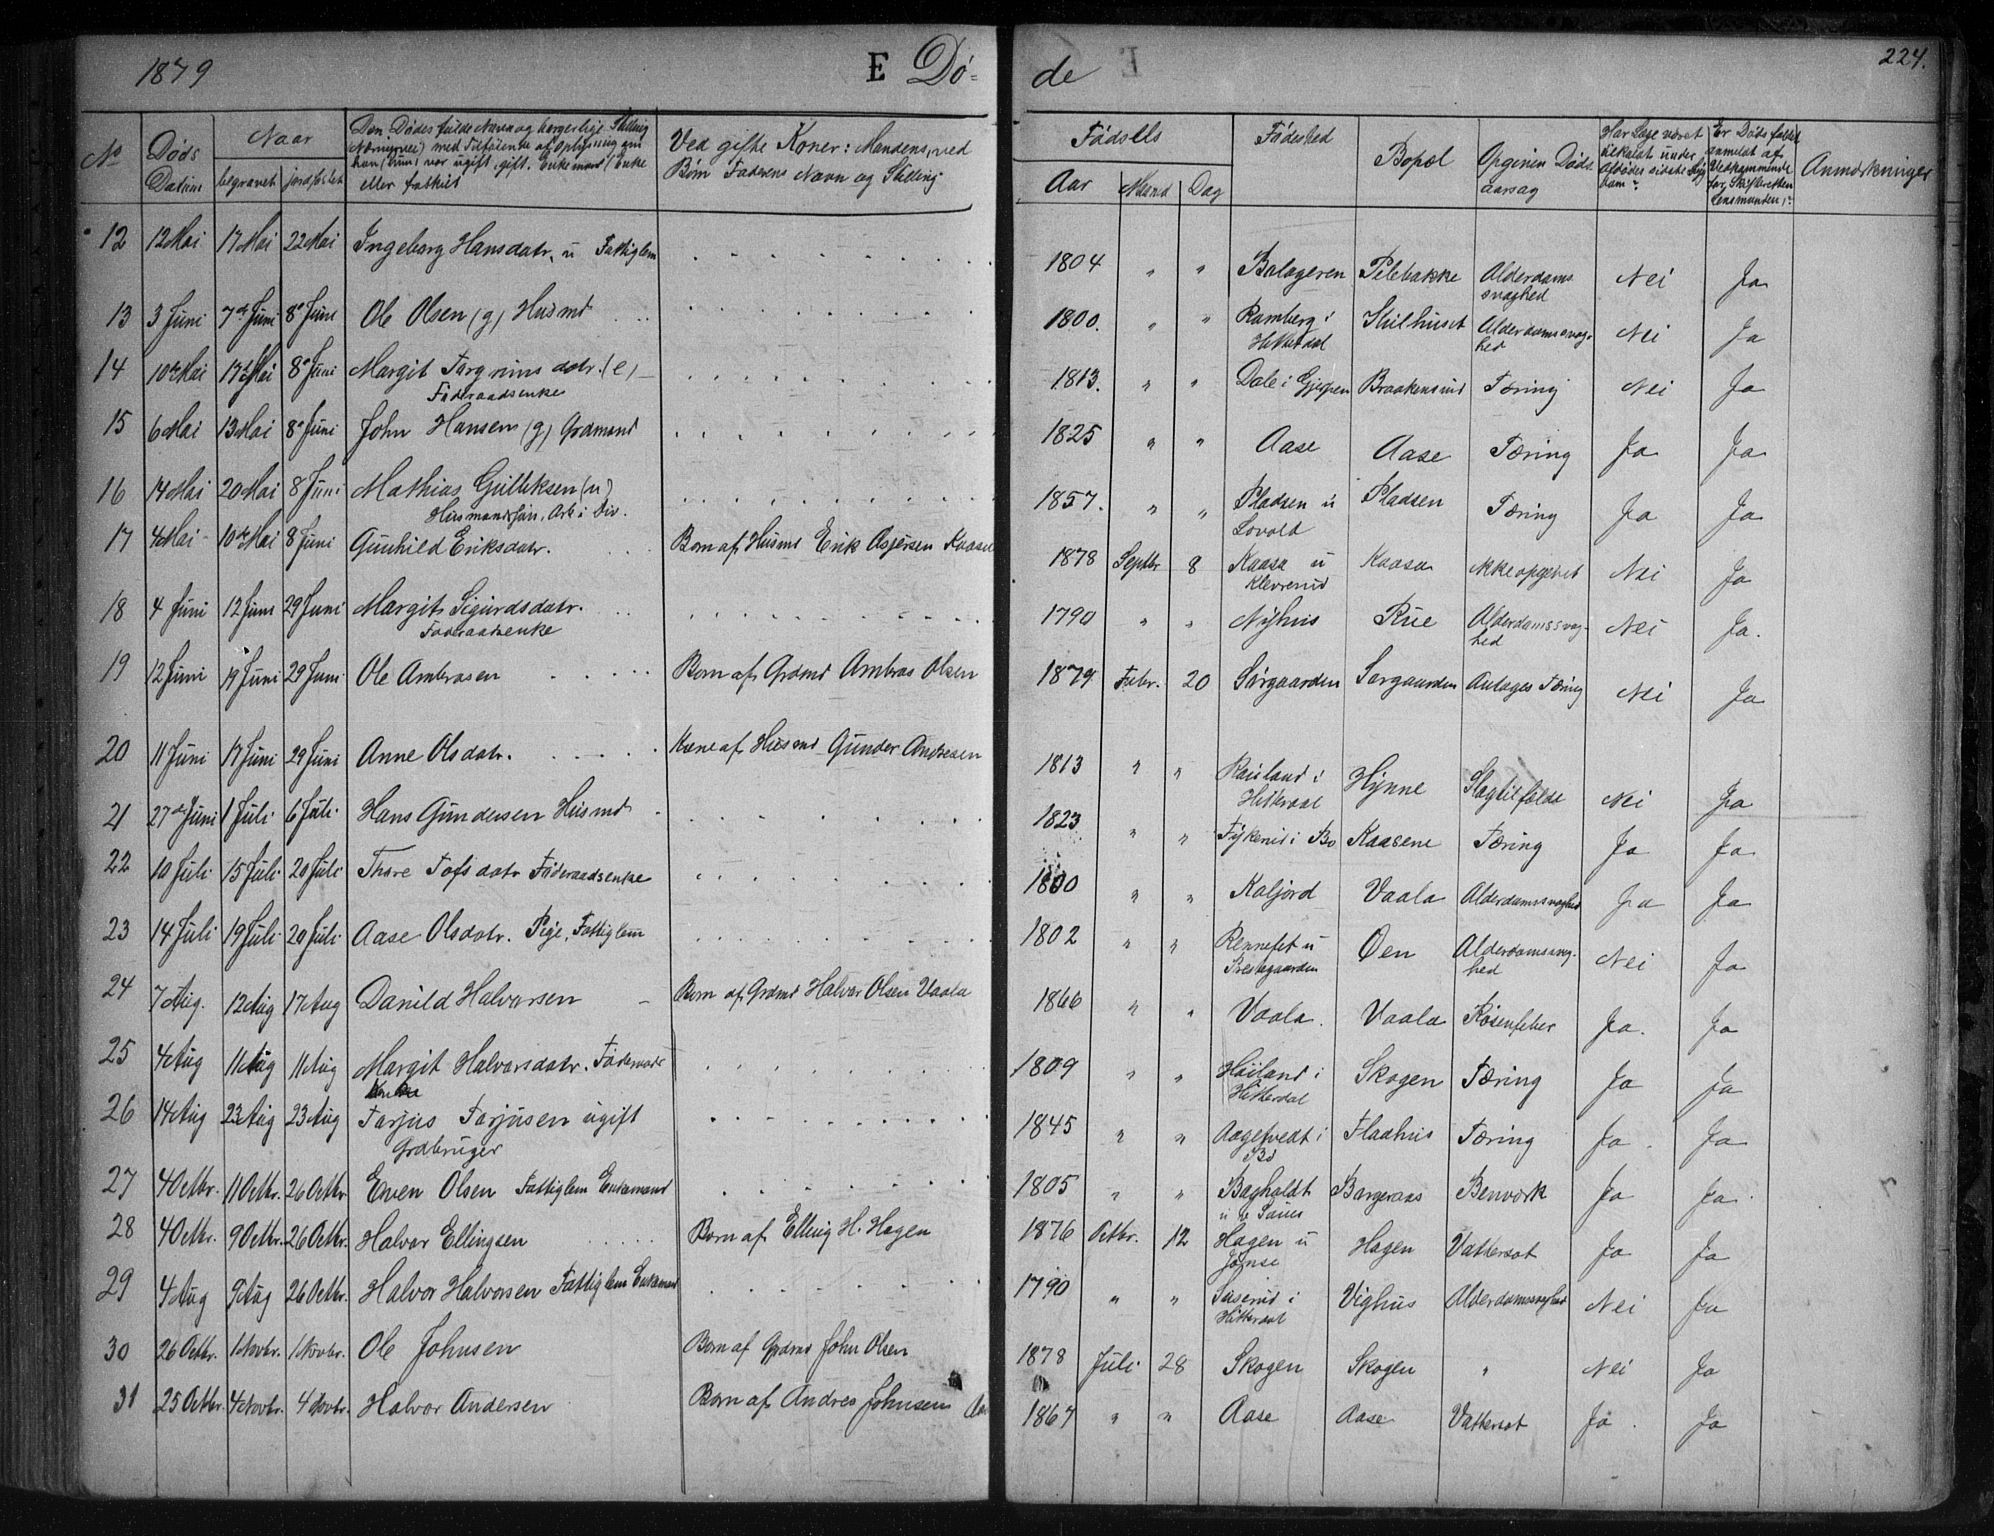 1879 E Dø- de 224.
No Døds Datum Naar begravet jordfæstet Den Dødes fulde Navn og borgerlige Stilling (Næringsvei) med Tilføiende af Oplysning om han (hun) var ugift, gift, Enkemand (Enke eller fraskilt Ved gifte Koner: Mandens, ved Børn Faderens Navn og Stilling Fødsels Aar Maaned Dag Fødested Bopæl Opgiven Døds aarsag Har Læge været tilkaldt under Afdødes sidste Sygdom? Er Dødsfaldet anmeldt af Vedkommende for Skifteretten Lensmanden? Anmærkninger
12 12 Mai 17 Mai 22 Mai Ingeborg Hansdatr. u Fattiglem 1804 " " Balageren Pilebakke Alderdoms svaghed Nei Ja
13 3 Juni 7de Juni 8de Juni Ole Olsen (g) Husmd 1800. " " Ramberg i Hitterdal Skilhuset Alderdomssvaghed Nei Ja
14 10de Mai 17de Mai 8de Juni Margit Targrimsdatr. (e) Føderaadsenke 1813. " " Dale i Gjerpen Braakensrud Tæring Nei Ja
15 6 Mai 13 Mai 8de Juni John Hansen (g) Grdmand 1825 " " Aase Aase Tæring Ja Ja
16 14 Mai 20 Mai 8 Juni Mathias Gulliksen (u) Husmandssøn, Arb i Div. 1857. " " Pladsen u Lovold Pladsen Tæring Ja Ja
17 4 Mai 10de Mai 8 Juni Gunhild Eriksdatr. Barn af Husmd Erik Asjersen Kaasa 1878 Septbr 8 Kaasa u Klevrerud Kaasa ikke opgivet Nei Ja
18 4 Juni 12 Juni 29 Juni Margit Sigurdsdatr. Føderaadsenke 1790 " " Nyhus Rue Alderdomssvaghed Nei Ja.
19 12 Juni 19 Juni 29 Juni Ole Ambrosen Barn af Grdmd Ambros Olsen 1879 Febr. 20 Sørgaarden Sørgaarden Antages Tæring Nei Ja
20 11 Juni 17 Juni 29 Juni Anne Olsdatr. Kone af Husmd Gunder Andresen 1813 " " Rauland i Hitterdal Hynne Slagtilfælde Nei Ja
21 27de Juni 1 Juli 6 Juli Hans Gundersen Husmd 1823 " " Tykerud i Bø Kaasene Tæring Ja Ja
22 10 Juli 15 Juli 20 Juli Thore Tofsdatr Føderaadsenke 1800 " " Kaljord Vaala Alderdomssvaghed Ja Ja
23 14 Juli 19 Juli 20 Juli Aase Olsdatr. Pige, Fattiglem 1802 " " Rennefet u Prestegaarden Øen Alderdomssvaghed Nei Ja
24 7 Aug. 12 Aug 17 Aug Danild Halvorsen Barn af Grdmd Halvor Olsen Vaala 1866 " " Vaala. Vaala Rosenfeber Ja. Ja
25 4 Aug 11 Aug 11 Aug Margit Halvorsdatr. Føderaads Enke 1809 " " Høiland i Hitterdal Skogen Tæring Ja Ja
26 14 Aug 23 Aug 23 Aug Tarjus Tarjusen ugift Grdbruger 1845 " " Aagetvedt i Bø Fladhus Tæring Ja Ja
27 4 Octbr. 11 Octbr. 26 Octbr Even Olsen Fattiglem Enkemand 1805 " " Bagholdt u Saues Borgeraas Benværk Ja Ja.
28 4 Octbr. 9 Octbr. 26 Octbr. Halvor Ellingsen Barn af Elling H. Hagen 1876 Octbr. 12 Hagen u Jønse Hagen Vattersot Ja Ja
29 4 Aug 9 Aug 26 Octbr. Halvor Halvorsen Fattiglem Enkemand 1790 " " Suserud i Hitterdal Vighus Alderdomssvaghed Nei Ja
30 26 Octbr. 1 Novbr. 1 Novbr. Ole Johnsen Barn af Grdmd John Olsen 1878 Juli 28 Skogen Skogen " Nei Ja
31 25 Octbr. 4 Novbr. 4 Novbr. Halvor Andersen Barn af Andres Johnsen Aa 1867 " " Aase Aase Vattersot Ja. Ja